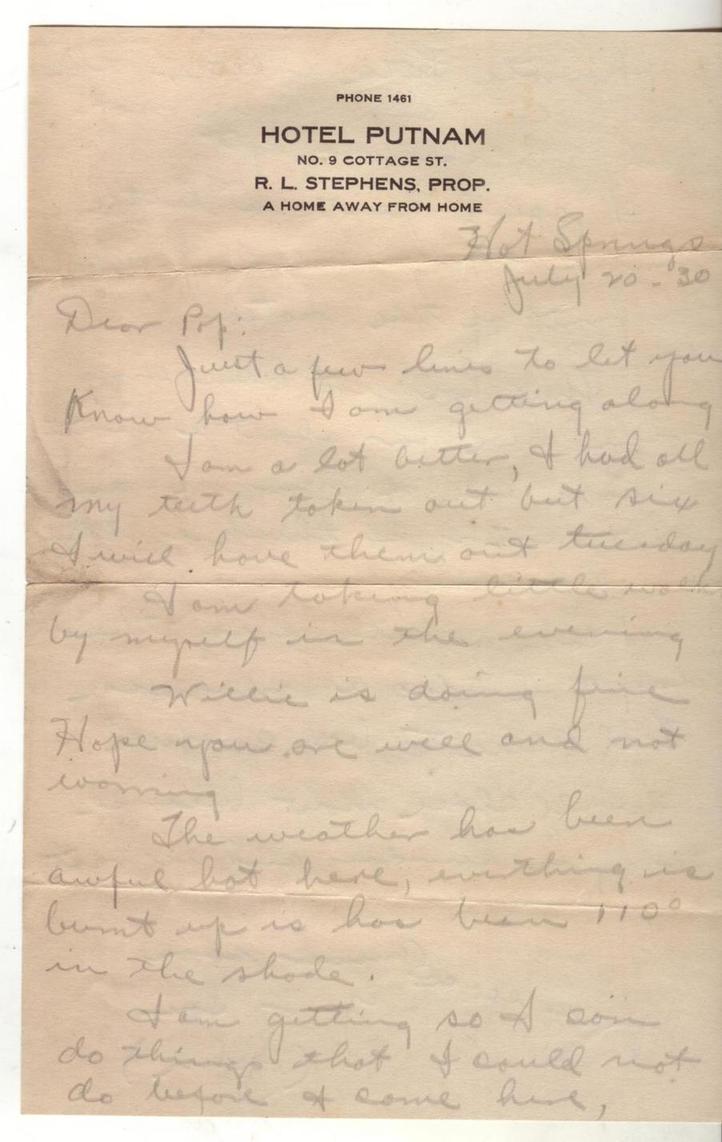 PHONE 1461
HOTEL PUTNAM
NO. 9 COTTAGE ST.
R. L. STEPHENS, PROP.
A HOME AWAY FROM HOME
Hot Springs
July 20 - 30
Dear Pop:
Just a few lines to let you
Know how I am getting along
I am a lot better, I had all
my teeth taken out but six
I will have them out tuesday
I am taking little walk
by myself in the evening
Willie is doing fine
Hope you are well and not
worring
The weather has been
awful hot here, everthing is
burnt up is has been 110°
in the shade.
I am getting so I can
do things that I could not
do before I come here,